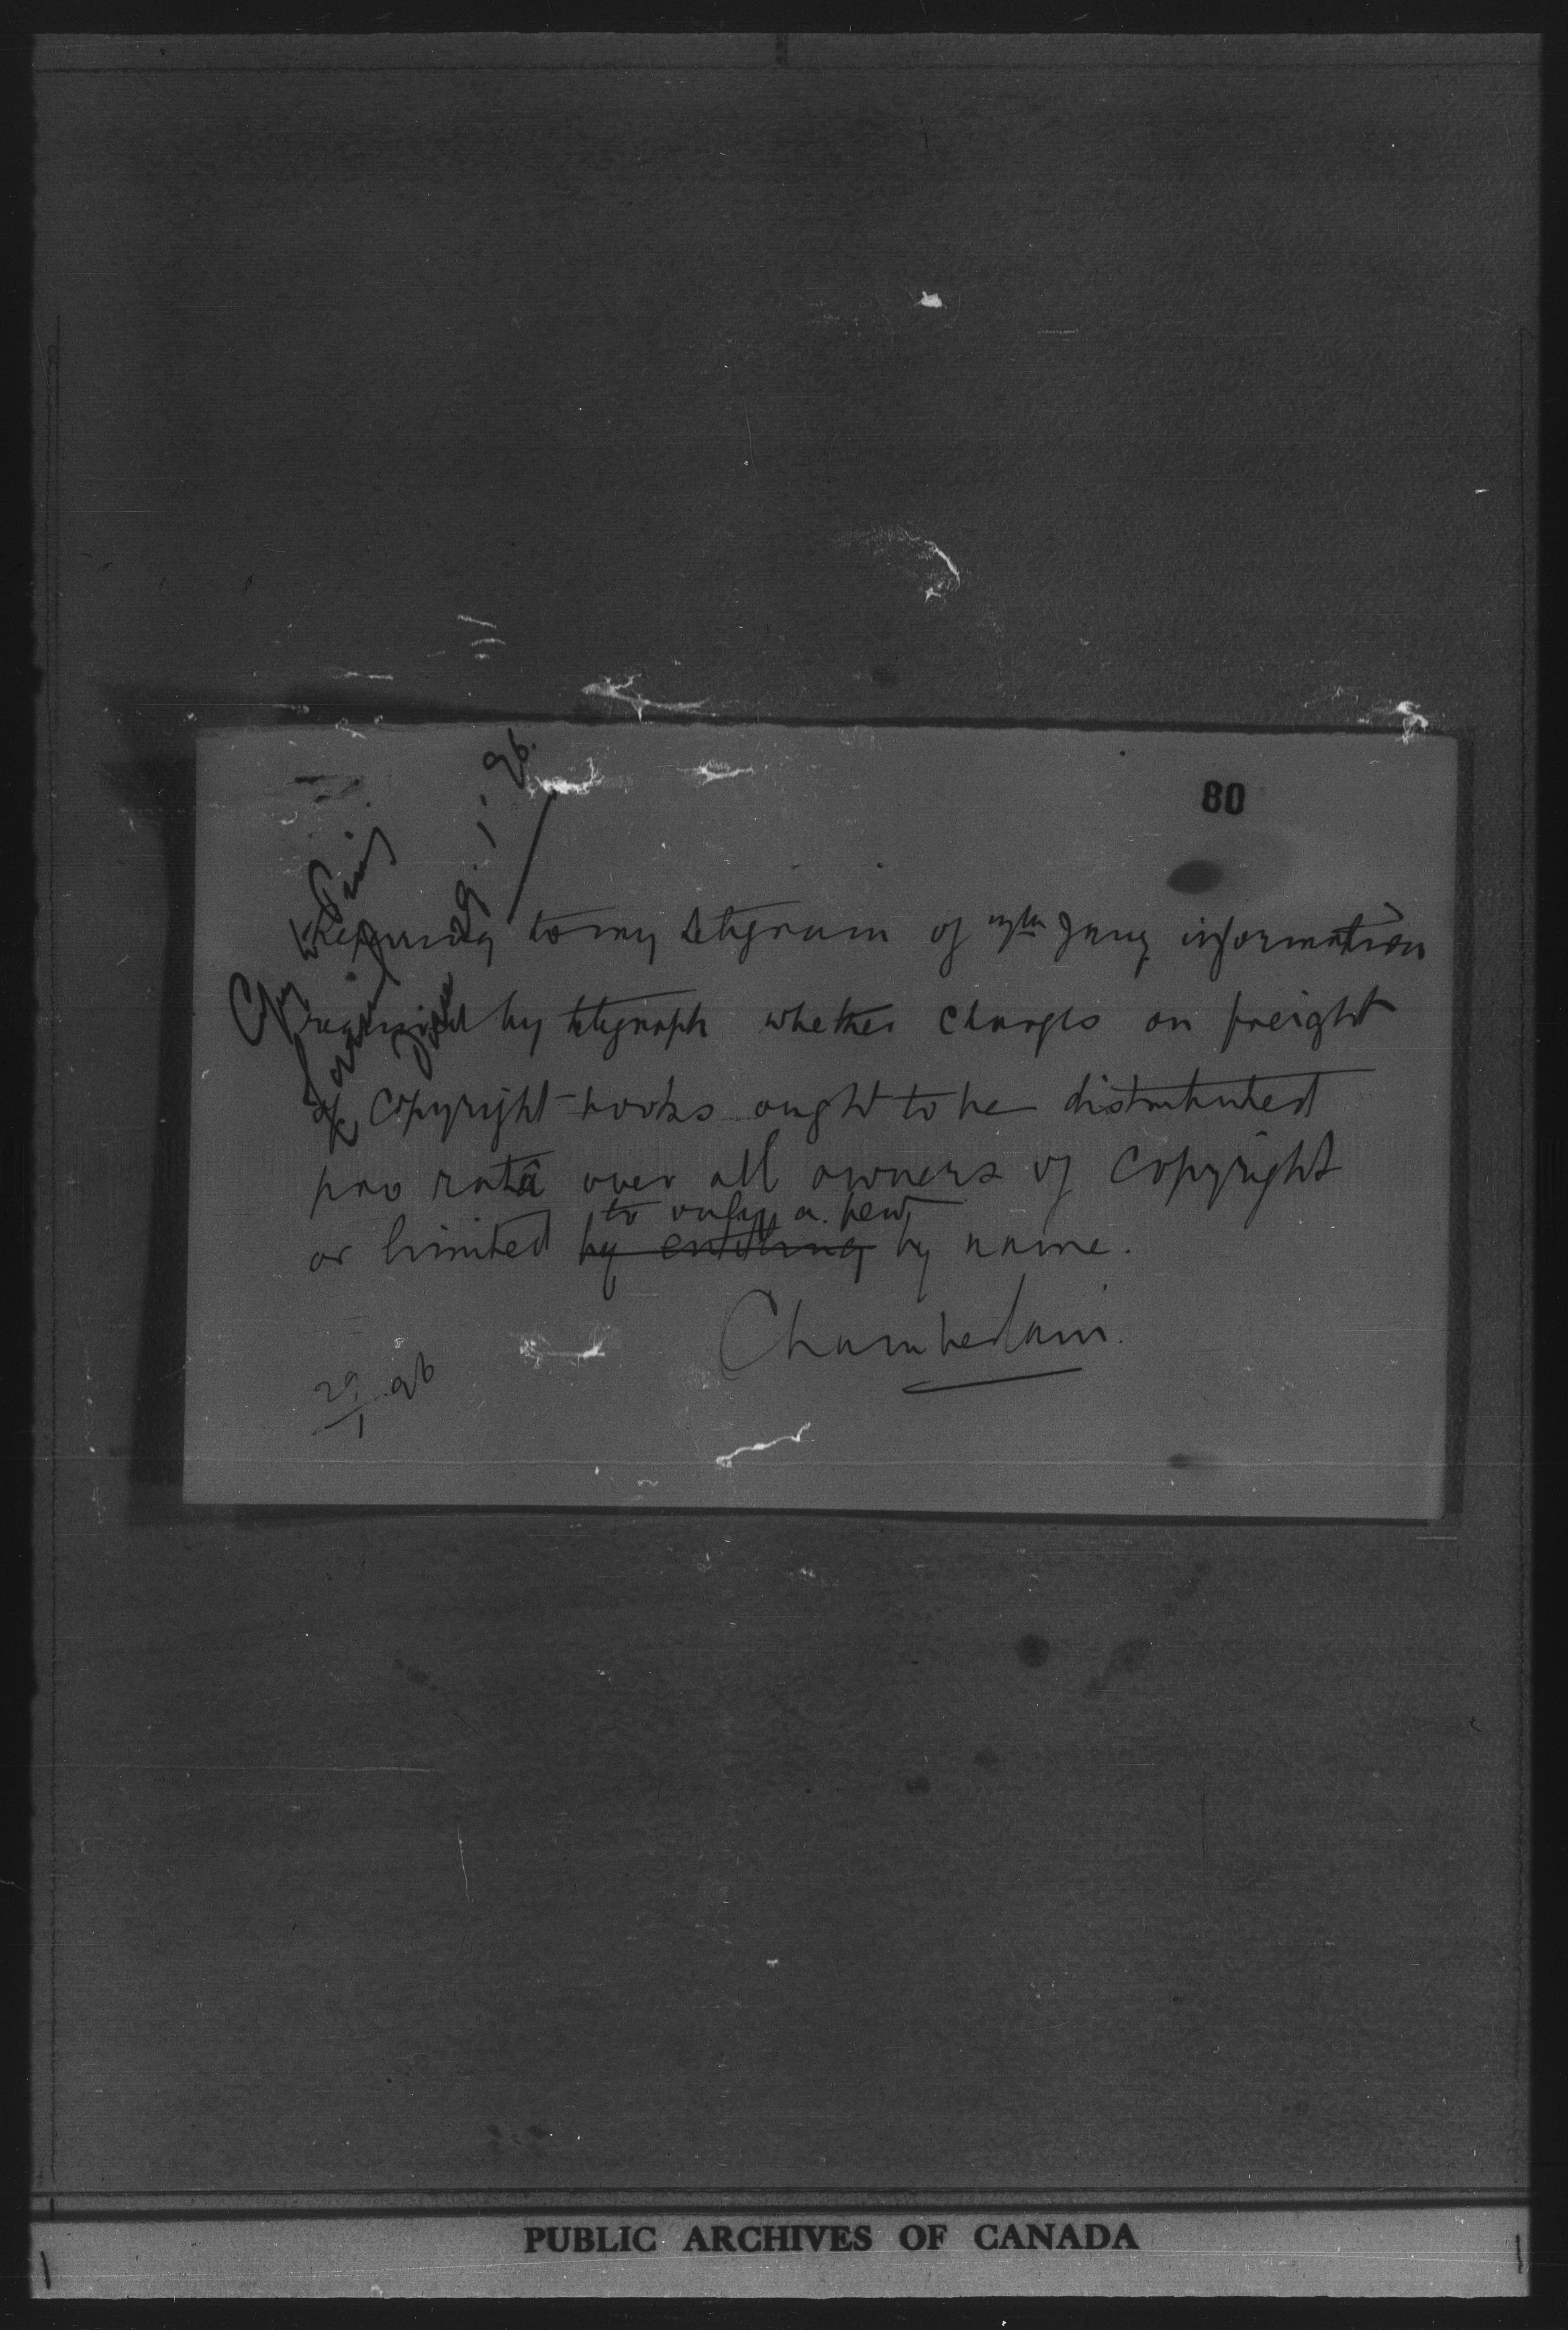 80
Copy to Privy
Council
29. 1. 96.
Referring to my telegram of Jany information
required by telegraph whether charges on freight
of copyright books ought to be distributed
pro ratâ over all owners of copyright
to only a few
or limited by entitling by name.
Chamberlain.
29/1 96
PUBLIC ARCHIVES OF CANADA